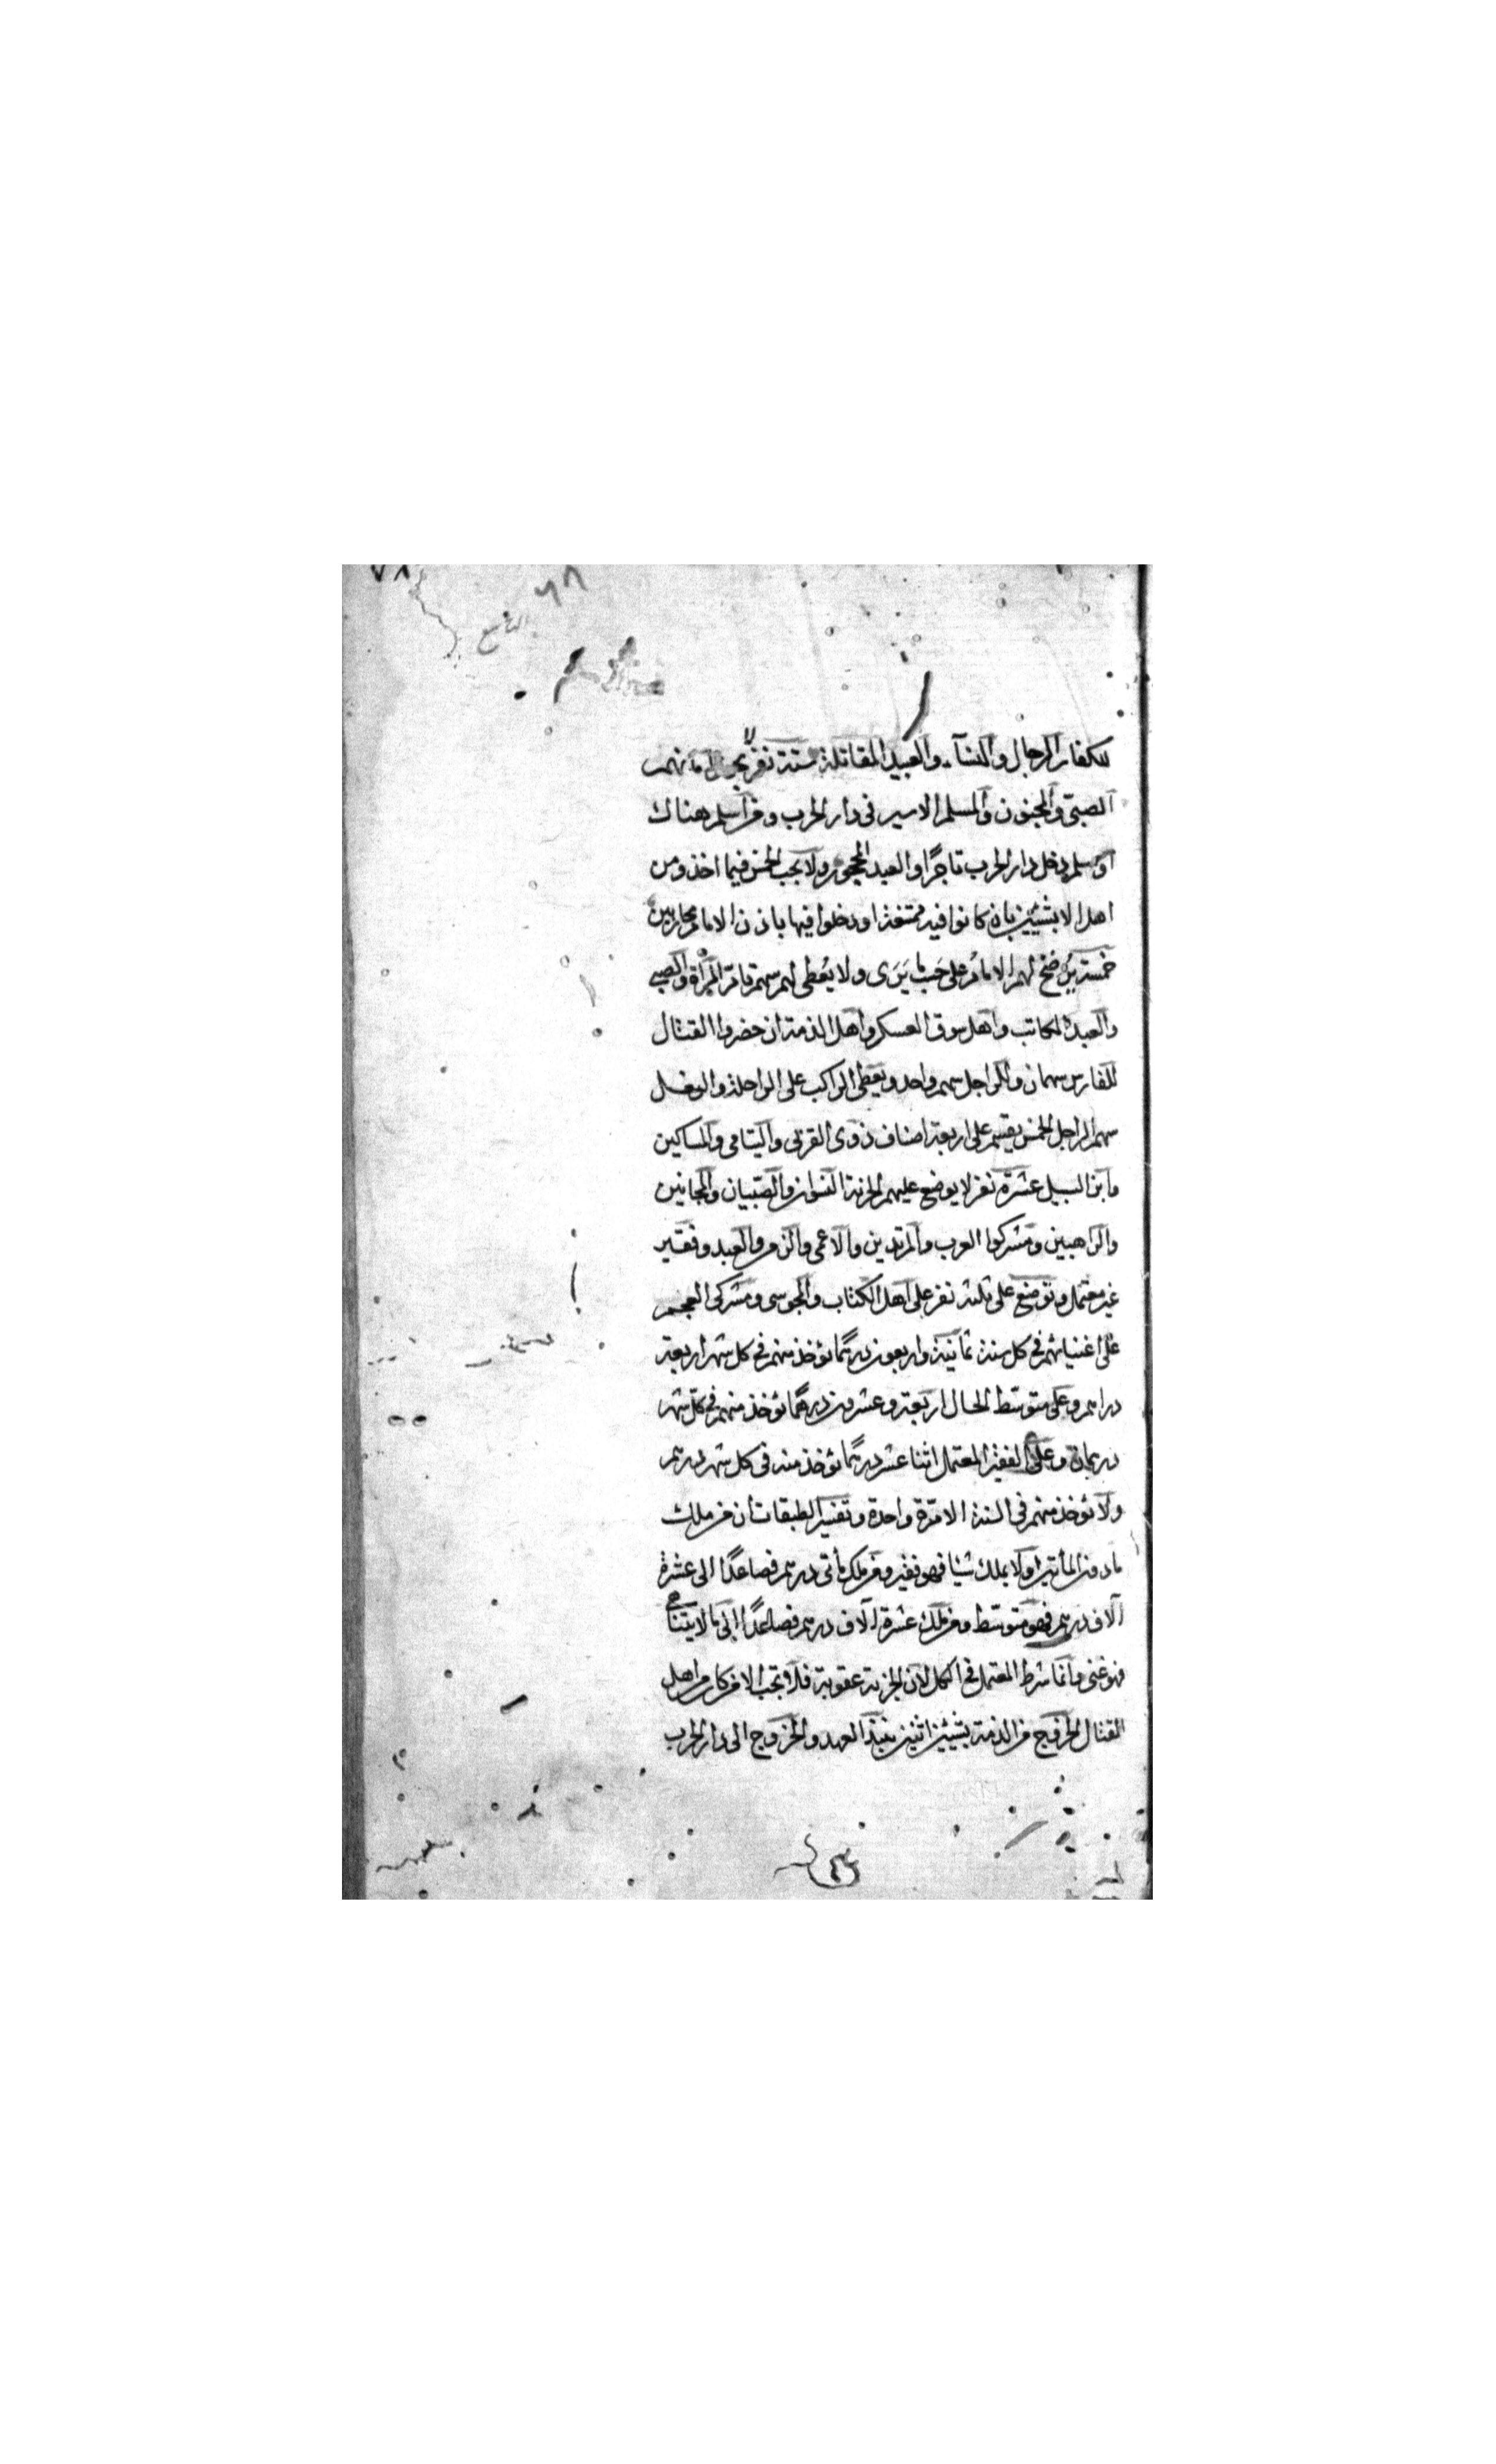 ٧٨
٦٨
التاسع
للكفار الرجال والنسآء والعبيد المقاتلة ستة نفر لا امانهم
الصبىّ والمجنون والمسلم الاسير فى دار الحرب ومن اسلم هناك
او مسلم دخل دار الحرب تاجرًا والعبد المحجور ولا يجب الخمس فيما اخذ من
اهل الا بشيئين بان كانوا فيه ممتنعة او دخلوا فيها باذن الامام محاربين
خمسة يرضخ لهم الامام على حسب ما يَرَى ولا يُعطى لهم سهم تامّ المرأة والصبى
والعبد المكاتب واهل سوق العسكر واهل الذمة ان حضروا القتال
للفارس سهمان وللراجل سهم واحد ويعطى الراكب على الراحلة والبغل
سهم الراجل الخمس يقسم على اربعة اصناف ذوى القربى واليتامى والمساكين
وابن السبيل عشرة نفر لا يوضع عليهم الجزية النسوان والصبيان والمجانين
والراهبين ومشركوا العرب والمرتدين والاعمى والزمن والعبد وفقير
غير معتمل وتوضع على ثلثة نفر على اهل الكتاب والمجوسى ومشركى العجم
على اغنيائهم فى كل سنة ثمانية واربعون درهمًا تؤخذ منهم فى كل شهر اربعة
دراهم وعلى متوسّط الحال اربعة وعشرون درهمًا تؤخذ منهم فى كل شهر
درهمان وعلى الفقير المعتمل اثنا عشر درهمًا تؤخذ منه فى كل شهر درهم
ولا تؤخذ منهم فى السنة الا مرّة واحدة وتفسير الطبقات ان من ملك
ما دون المأتين او لا يملك شيئا فهو فقير ومن ملك مأتى درهم فصاعدًا الى عشرة
آلاف درهم فهو متوسّط ومن ملك عشرة آلاف درهم فصاعدًا الى ما لا يتناهى
فهو غنى وانما شرط المعتمل فى الكل لان الجزية عقوبة فلا تجب الا من كان من اهل
القتال الخروج من الذمة بشيئين اثنين بنبذ العهد والخروج الى دار الحرب